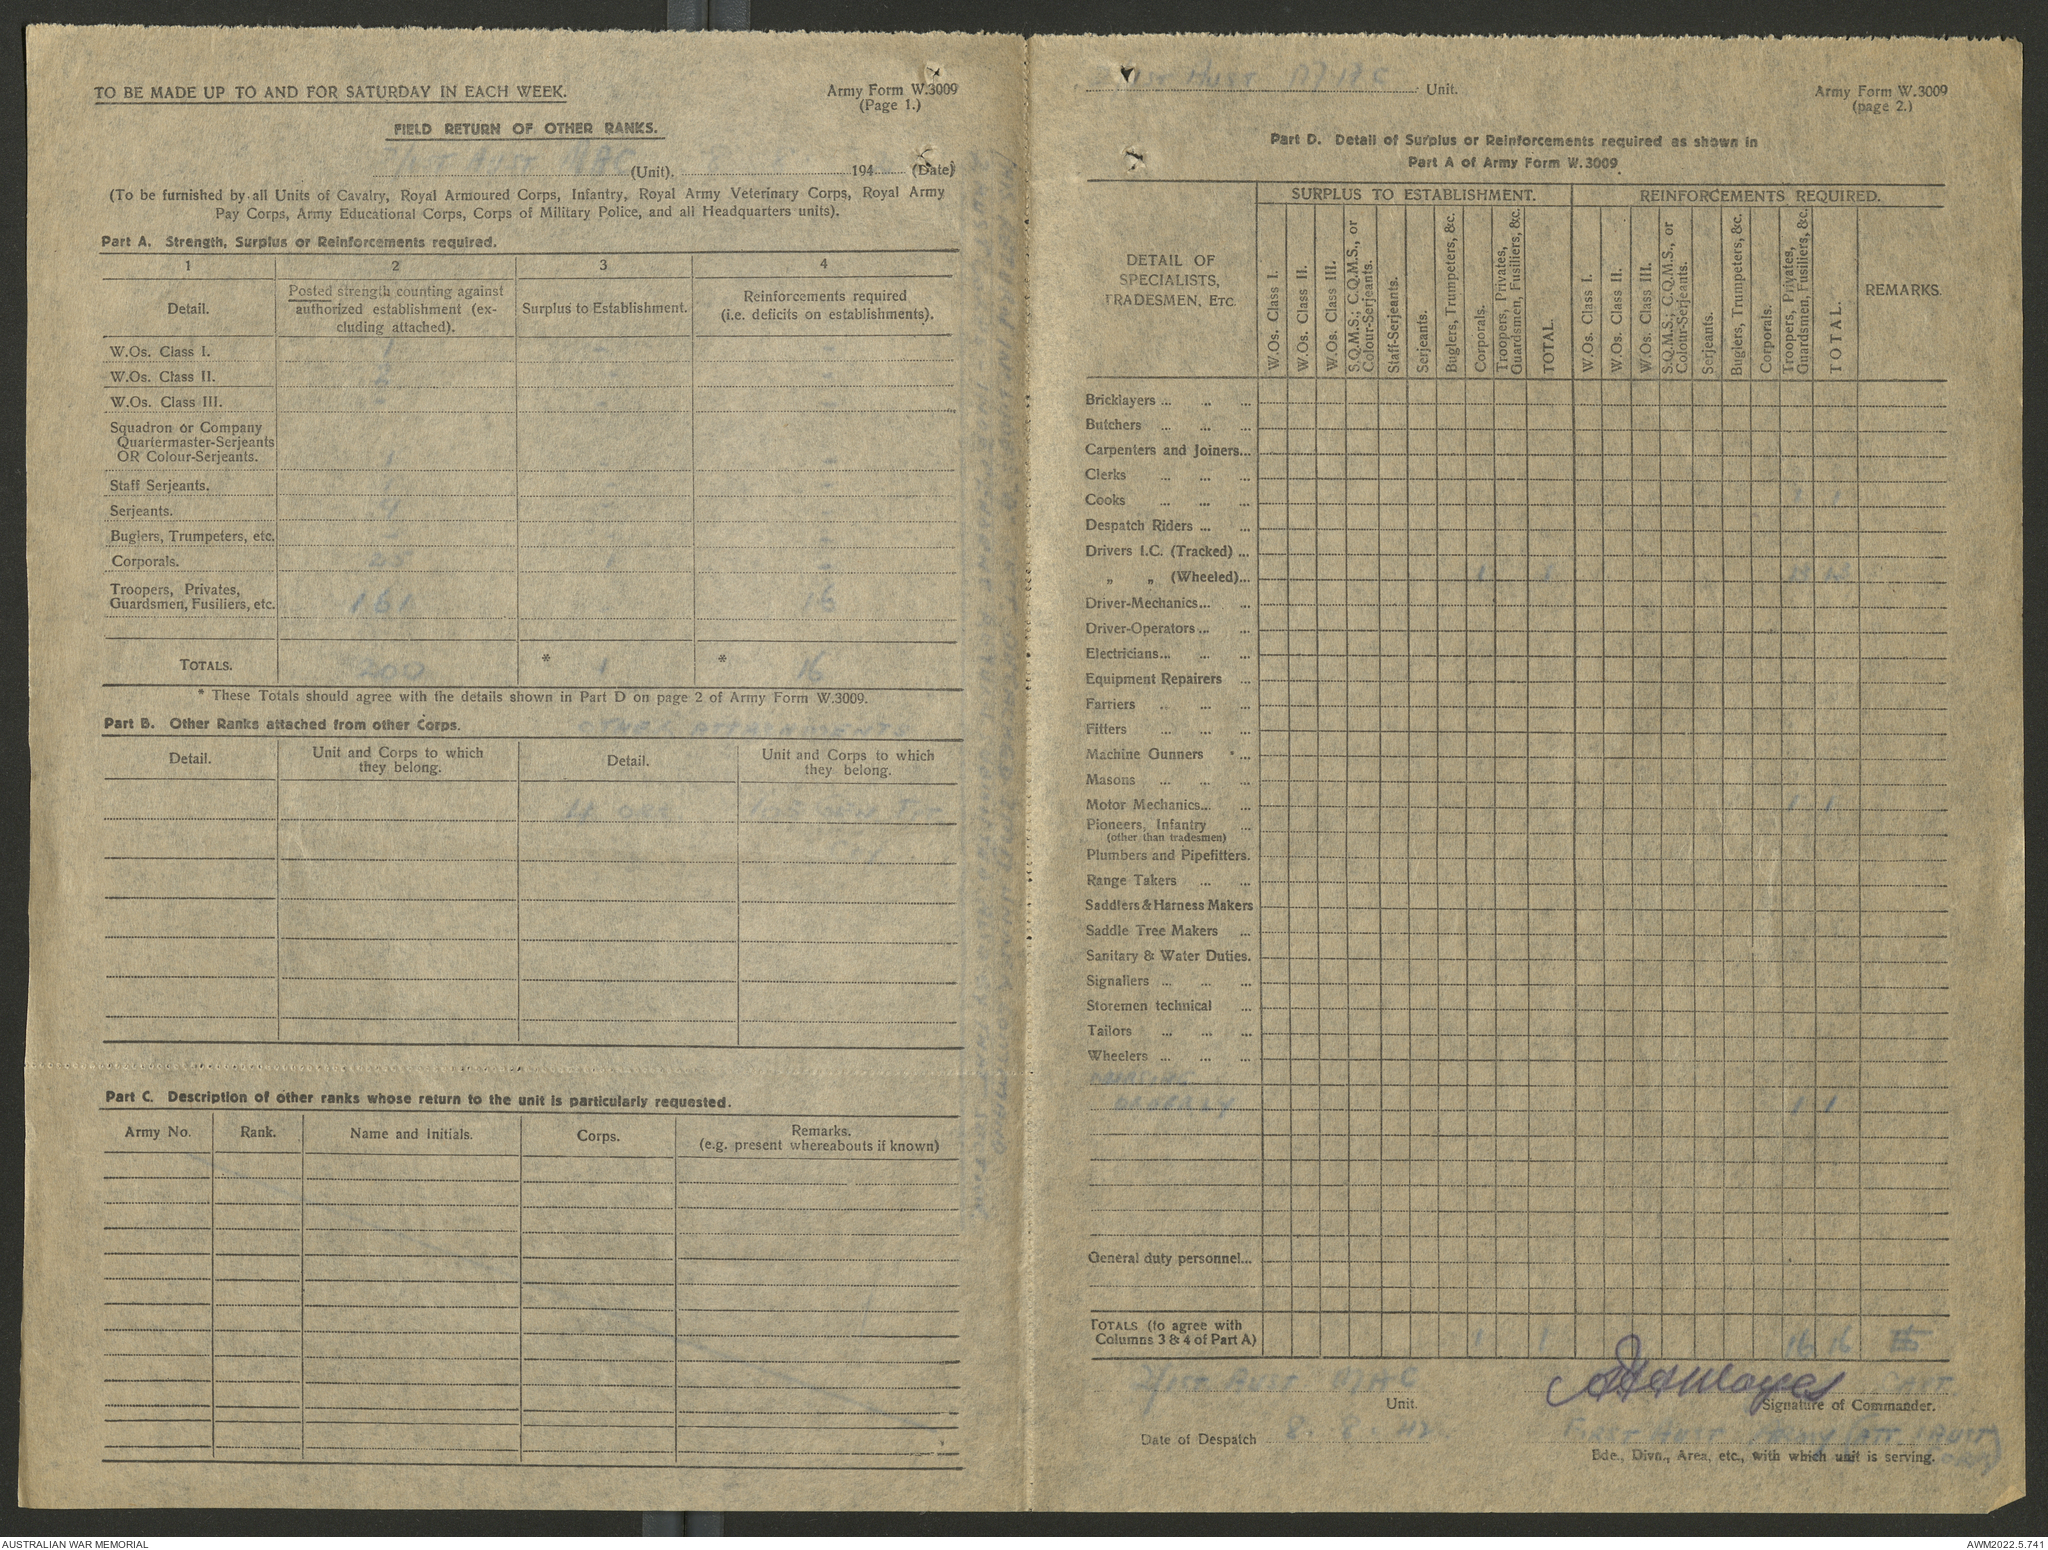 TO BE MADE UP TO AND FOR SATURDAY IN EACH WEEK.
Army Form W.3009
(Page 1.)
FIELD RETURN OF OTHER RANKS.
2/1ST AUST MAC (Unit), 194 (Date)
(To be furnished by all Units of Cavalry, Royal Armoured Corps, Infantry, Royal Army Veterinary Corps, Royal Army
Pay Corps, Army Educational Corps, Corps of Military Police, and all Headquarters units).
Part A. Strength, Surplus or Reinforcements required.
1 2 3 4
Detail.
Posted strength counting against
authorized establishment (ex-
cluding attached).
Surplus to Establishment.
Reinforcements required
(i.e. deficits on establishments).
W.Os. Class I.
W.Os. Class II.
W.Os. Class III.
Squadron or Company
Quartermaster-Serjeants
OR Colour-Serjeants.
Staff Serjeants.
Serjeants.
Buglers, Trumpeters, etc.
Corporals. 1
Troopers, Privates,
Guardsmen, Fusiliers, etc. 161 16
TOTALS. 200 * 1 * 16
* These Totals should agree with the details shown in Part D on page 2 of Army Form W.3009.
Part B. Other Ranks attached from other Corps.
OTHER ATTACHMENTS
Detail.
Unit and Corps to which
they belong.
Detail.
Unit and Corps to which
they belong.
Part C. Description of other ranks whose return to the unit is particularly requested.
Army No. Rank. Name and Initials. Corps.
Remarks.
(e.g. present whereabouts if known)
2/1ST AUST MAC Unit.
Army Form W.3009
(page 2.)
Part D. Detail of Surplus or Reinforcements required as shown in
Part A of Army Form W.3009
DETAIL OF
SPECIALISTS,
TRADESMEN, ETC.
SURPLUS TO ESTABLISHMENT.
W.Os. Class I.
W.Os. Class II.
W.Os. Class III.
S.Q.M.S.; C.Q.M.S., or
Colour-Serjeants.
Staff-Serjeants.
Serjeants.
Buglers, Trumpeters, &c.
Corporals.
Troopers, Privates,
Guardsmen, Fusiliers, &c.
TOTAL.
REINFORCEMENTS REQUIRED.
W.Os. Class I.
W.Os. Class II.
W.Os. Class III.
S.Q.M.S.; C.Q.M.S., or
Colour-Serjeants.
Serjeants.
Buglers, Trumpeters, &c.
Corporals.
Troopers, Privates,
Guardsmen, Fusiliers, &c.
TOTAL.
REMARKS.
Bricklayers ... ... ...
Butchers ... ... ...
Carpenters and Joiners...
Clerks ... ... ...
Cooks ... ... ... 1 1
Despatch Riders ... ...
Drivers I.C. (Tracked) ...
" " (Wheeled)... 1 1 13 13
Driver-Mechanics... ...
Driver-Operators ... ...
Electricians... ... ...
Equipment Repairers ...
Farriers ... ... ...
Fitters ... ... ...
Machine Gunners ...
Masons ... ... ...
Motor Mechanics... ... 1 1
Pioneers, Infantry ...
(other than tradesmen)
Plumbers and Pipefitters.
Range Takers ... ...
Saddlers & Harness Makers
Saddle Tree Makers ...
Sanitary & Water Duties.
Signallers ... ... ...
Storemen technical ...
Tailors ... ... ...
Wheelers ... ... ...
NURSING
ORDERLY 1 1
General duty personnel...
TOTALS (to agree with
Columns 3 & 4 of Part A) 1 1 16 16
2/1ST AUST MAC
Unit.
Signature of Commander.
Date of Despatch 8.8.42.
FIRST AUST ARMY (ATT 1 AUST
Bde., Divn., Area, etc., with which unit is serving.
AUSTRALIAN WAR MEMORIAL
AWM2022.5.741